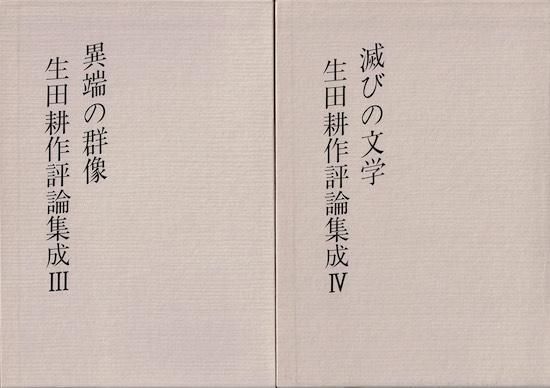 異端の群像
生田耕作評論集成Ⅲ
滅びの文学
生田耕作評論集成Ⅳ